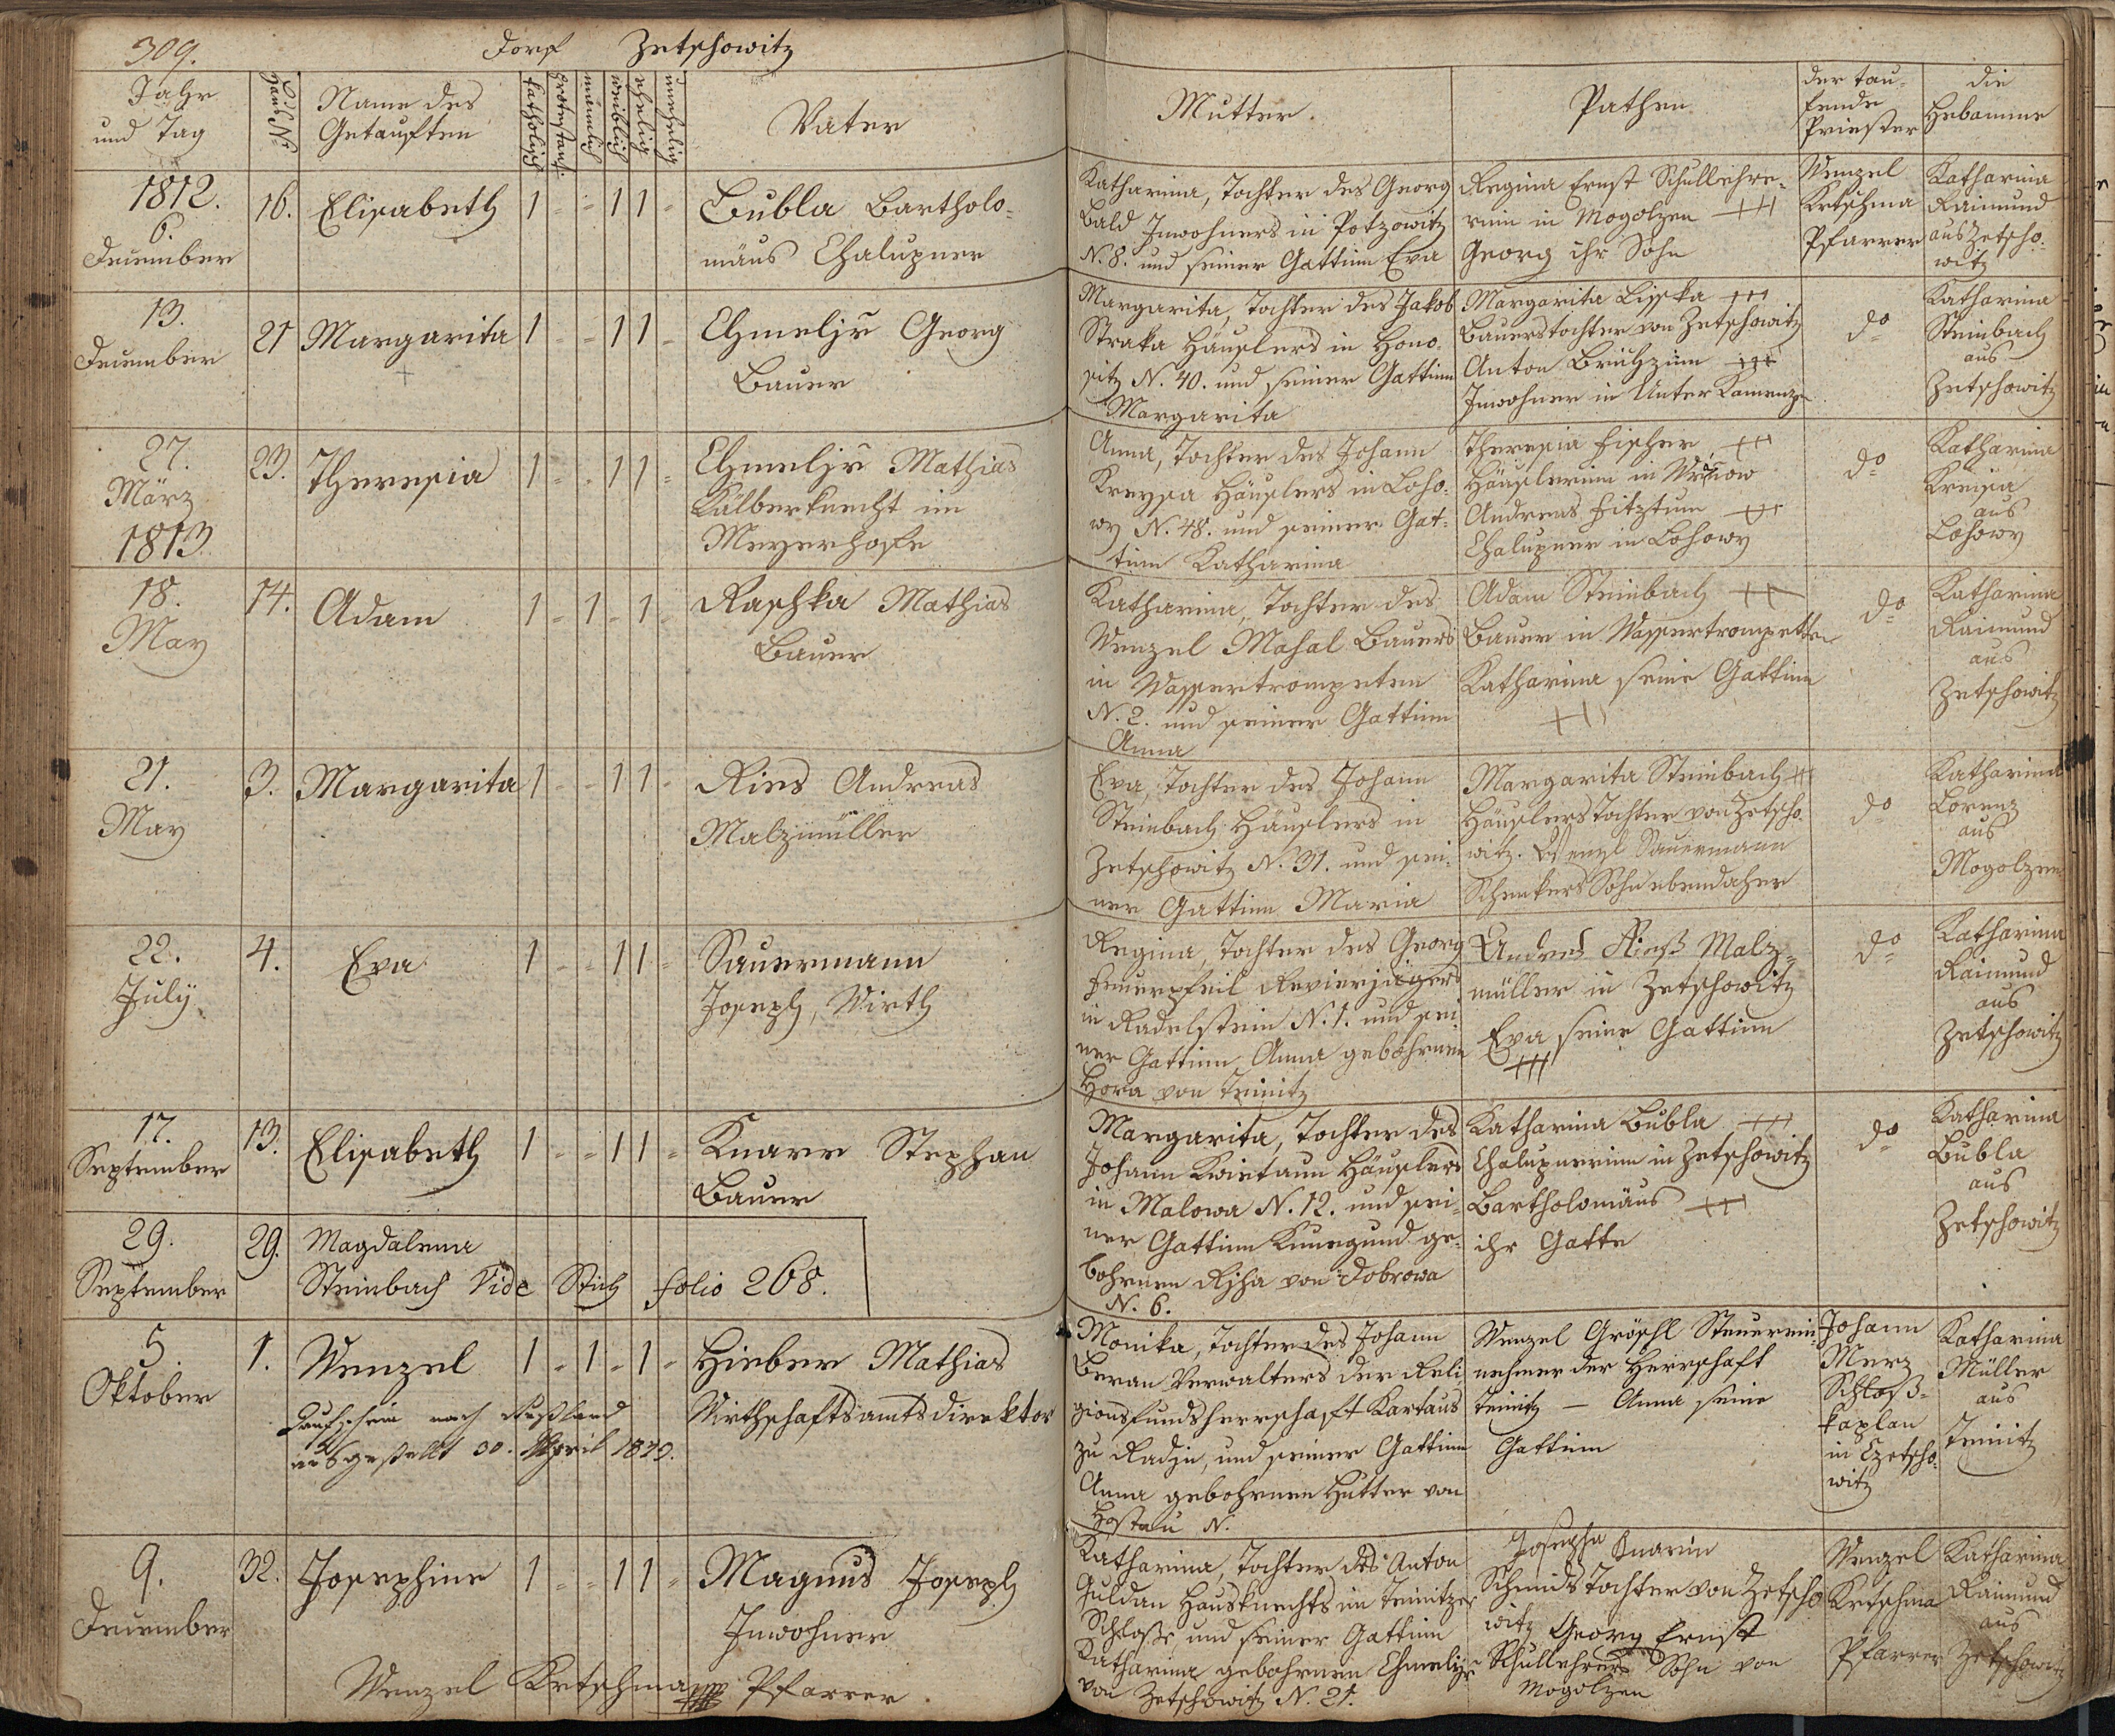 309. Dorf Zetschowitz
Jahr und Tag
Haus N.
Name des Getauften
katholisch
protestant.
männlich
weiblich
ehelich
unehelich
Vater
Mutter.
Pathen
der tau-
fende
Priester
die
Hebamme
1812.
6.
Dezember
16. Elisabeth 1 - - 1 1 -
Bubla Bartholo-
mäus Chalupner
Katharina, Tochter des Georg
Bald Inwohners in Potzowitz
N. 8. und seiner Gattinn Eva
Regina Ernst Schullehre-
rinn in Mogolzen +++
Georg ihr Sohn
Wenzel
Krtschma
Pfarrer
Katharina
Raimund
aus Zetscho-
witz
13.
Dezember
21 Margarita 1 - - 1 1 -
Chmeljř Georg
Bauer
Margarita, Tochter des Jakob
Straka Häuslers in Hono-
sitz N. 40. und seiner Gattinn
Margarita
Margarita Lisska +++
Bauerstochter von Zetschowitz
Anton +++
Inwohner in Unter Kamenzen
do
Katharina
Steinbach
aus
Zetschowitz
27.
März
1813
23. Theresia 1 - - 1 1 -
Chmeljř Mathias
Kälberknecht im
Meyerhofe
Anna, Tochter des Johann
Kreysa Häuslers in Loho-
wy N. 48. und seiner Gat-
tinn Katharina
Theresia Fischer +++
Häuslerinn in
Andreas Fitztum +++
Chalupner in Lohowy
do
Katharina
Kreisa
aus
Lohowy
18.
May
14. Adam 1 - 1 - 1 -
Raschka Mathias
Bauer
Katharina, Tochter des
Wenzel Mahal Bauers
in Wassertrompeten
N. 2. und seiner Gattinn
Anna
Adam Steinbach +++
Bauer in Wassertrompetten
Katharina seine Gattinn
+++
do
Katharina
Raimund
aus
Zetschowitz
21.
May
3. Margarita 1 - - 1 1 -
Ries Andreas
Malzmüller
Eva, Tochter des Johann
Steinbach Häuslers in
Zetschowitz N. 31. und sei-
ner Gattinn Maria
Margarita Steinbach +++
Häuslers Tochter von Zetscho-
witz. Wenzl Sauermann
Schenkers Sohn ebendaher
do
Katharina
Lorenz
aus
Mogolzen
22.
July
4. Eva 1 - - 1 1 -
Sauermann
Joseph, Wirth
Regina, Tochter des Georg
Feuerpfeil Revierjägers
in Radelstein N. 1. und sei-
ner Gattinn Anna gebohrnen
Hora von Teinitz
Andres Rieß Malz-
müller in Zetschowitz
Eva seine Gattinn
+++
do
Katharina
Raimund
aus
Zetschowitz
17.
September
13. Elisabeth 1 - - 1 1 -
Knarr Stephan
Bauer
Margarita, Tochter des
Johann Kwietaun Häuslers
in Malowa N. 12. und sei-
ner Gattinn Kunegund ge-
bohrnen Rjha von Dobrowa
N. 6.
Katharina Bubla +++
Chalupnerinn in Zetschowitz
Bartholomäus +++
ihr Gatte
do
Katharina
Bubla
aus
Zetschowitz
29.
September
29. Magdalena
Steinbach Vide Stich folio 268.
5
Oktober
1. Wenzel 1 - 1 - 1 -
Taufschein nach Rußland
ausgestellt 30. April 1829.
Hieber Mathias
Wirthschaftsamtsdirektor
Monika, Tochter des Johann
Beran Verwalters der Reli-
gionsfundsherrschaft Kartaus
zu Radjn, und seiner Gattinn
Anna gebohrnen Hutter von
Hostau N.
Wenzel Gröschl Steuerein-
nehmer der Herrschaft
Teinitz — Anna seine
Gattinn
Johann
Merz
Schloß-
kaplan
in Czetscho-
witz
Katharina
Müller
aus
Teinitz
9.
Dezember
32. Josephine 1 - - 1 1 -
Magnus Joseph
Inwohner
Katharina, Tochter des Anton
Guldan Hausknechts im Teinitzer
Schlosse, und seiner Gattinn
Katharina gebohrnen Chmeljř
von Zetschowitz N. 21.
Josepha Knarin
Schmids Tochter von Zetscho-
witz Georg Ernst
Schullehrers Sohn von
Mogolzen
Wenzel
Krtschma
Pfarrer
Katharina
Raimund
aus
Zetschowitz
Wenzel Krtschma Pfarrer